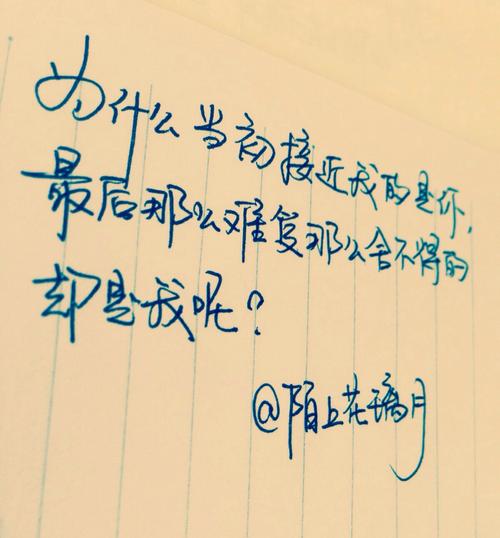 为什么当初接近我的是你,
最后那么难受那么舍不得的
却是我呢?
@陌上花璃月